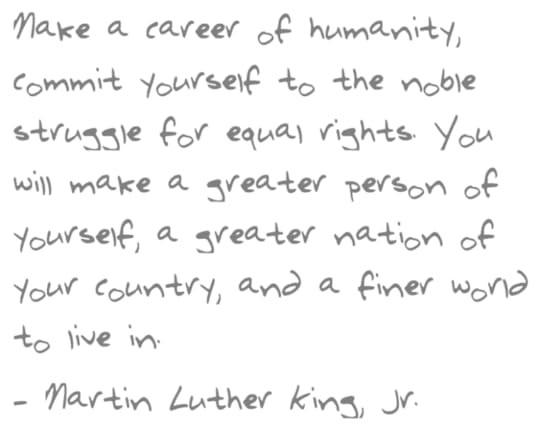 Make a career of humanity,
commit yourself to the noble
struggle for equal rights. You
will make a greater person of
yourself, a greater nation of
your country, and a finer world
to live in.
- Martin Luther King, Jr.